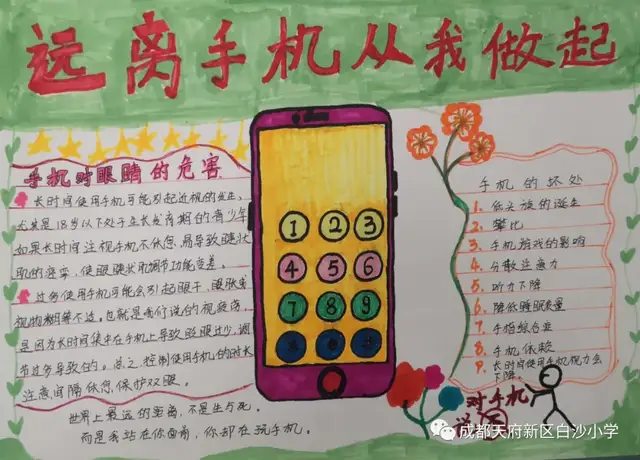 远离手机从我做起
手机对眼睛的危害
长时间使用手机可能引起近视的发生,
尤其是18岁以下处于生长发育期的青少年
如果长时间注视手机不休息,易导致睫状
肌的痉挛,使眼睫状肌调节功能变差。
过多使用手机可能会引起眼干、眼胀
视物模糊等不适,也就是咱们说的视疲劳,
是因为长时间集中在手机上导致眨眼过少,调
节过多导致的。总之,控制使用手机的时长
注意间隔休息,保护双眼。
世界上最远的距离,不是生与死。
而是我站在你面前,你却在玩手机。
1 2 3
4 5 6
7 8 9
手机的坏处
1. 低头族的诞生
2. 攀比
3. 手机游戏的影响
4. 分散注意力
5. 听力下降
6. 降低睡眠质量
7. 手指综合症
8. 手机依赖
9. 长时间使用手机视力会
下降
对手机
说
成都天府新区白沙小学